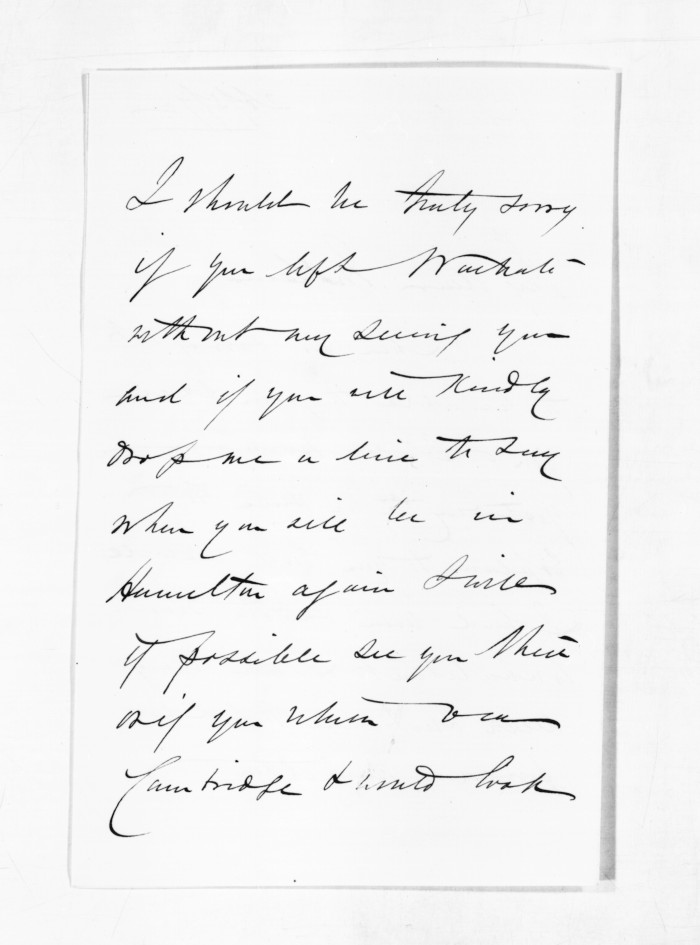 I should be truly sorry
if you left Waikato
without my seeing you
and if you will kindly
drop me a line to say
when you will be in
Hamilton again I will
if possible see you there
or if you return via
Cambridge I would look